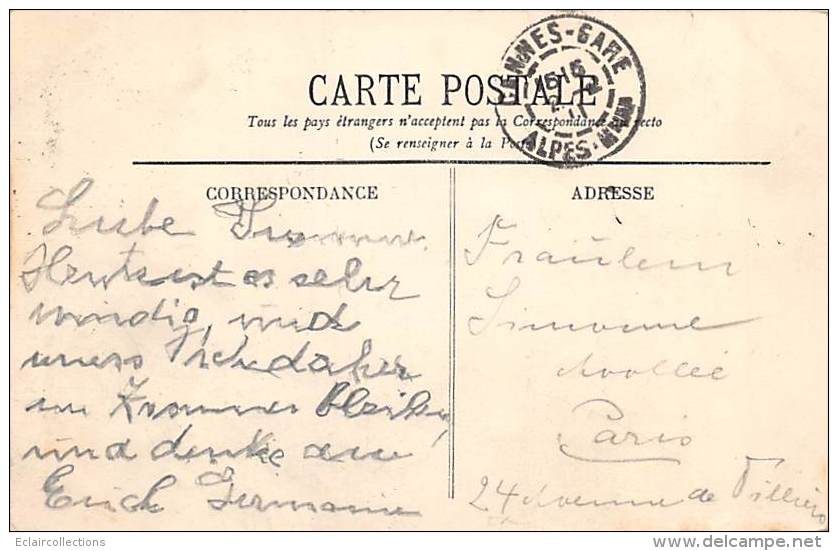 CANNES-GARE
15-15
ALPES-MMES
CARTE POSTALE
Tous les pays étrangers n'acceptent pas la Correspondance au recto
(Se renseigner à la Poste
CORRESPONDANCE
ADRESSE
Liebe
Heute ist es sehr
windig, und
muss ich daher
im Zimmer bleiben,
und denke an
Euch Germaine
Fräulein
Simonne
Paris
24 Avenue de Villiers
Eclaircollections
delcampe.net